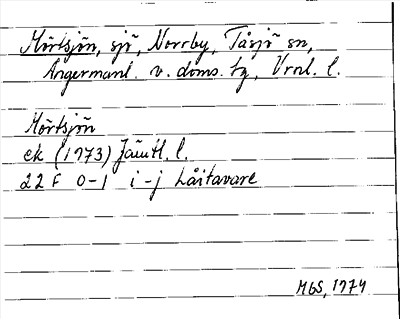 Mörtsjön, sjö, Norrby, Tåsjö sn,
Ångermanl. v. doms. tg, Vrnl. l.
Mörtsjön
ek (1973) Jämtl. l.
22 F 0-1 i-j Låitavare
MGS, 1974